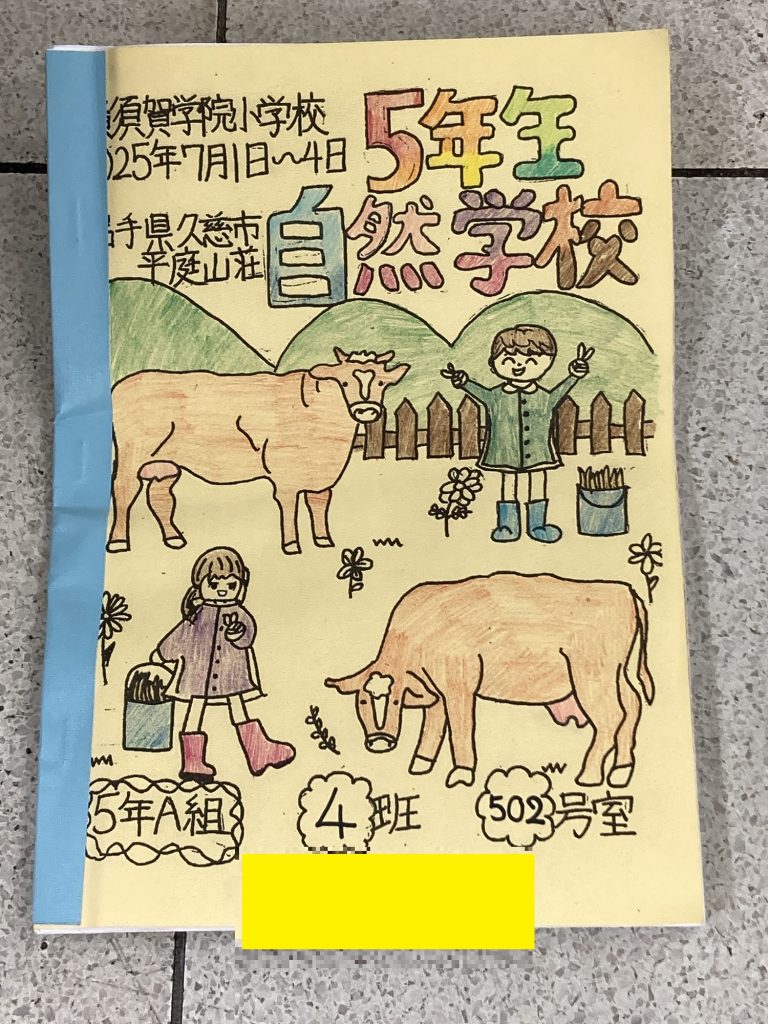 須賀学院小学校
025年7月1日~4日
5年生
手県久慈市
平庭山荘
自然学校
5年A組
4班
502号室